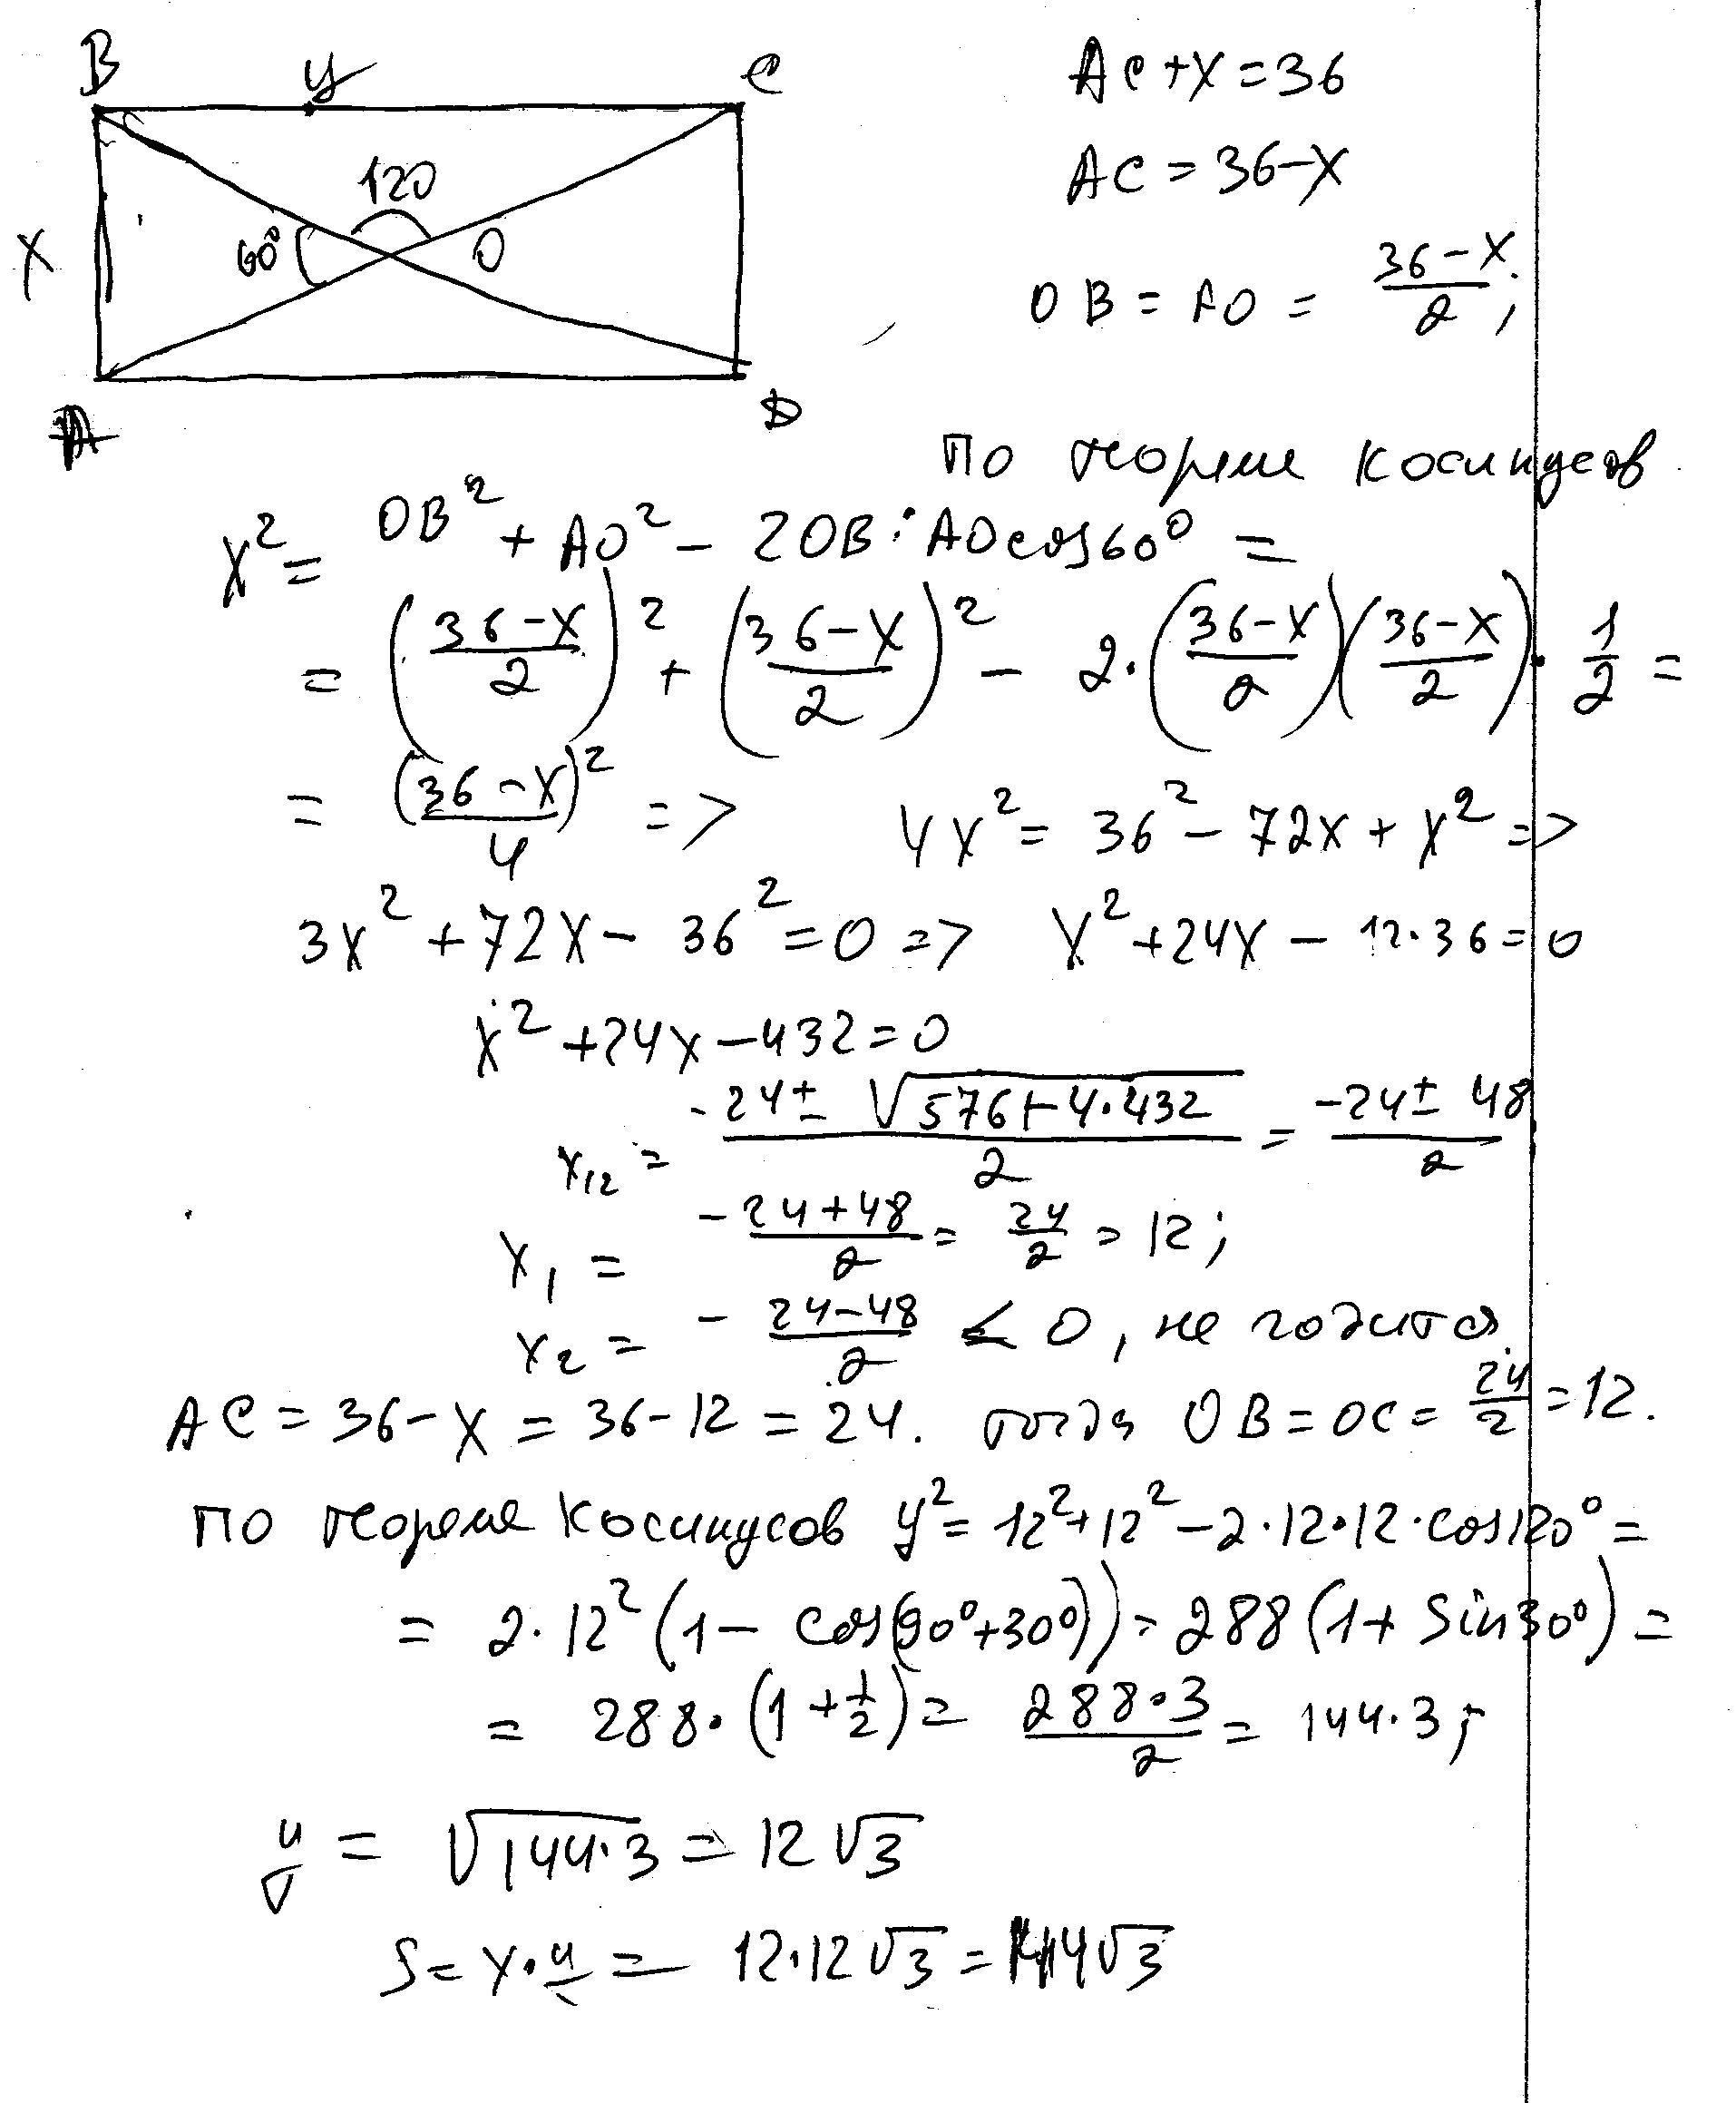 B y C
AC + x = 36
AC = 36 - x
120
60° O
x
OB = AO = (36 - x)/2;
A D
По теореме косинусов
x² = OB² + AO² - 2OB · AO cos 60° =
= ((36 - x)/2)² + ((36 - x)/2)² - 2 · ((36 - x)/2)((36 - x)/2) · 1/2 =
= (36 - x)²/4 => 4x² = 36² - 72x + x² =>
3x² + 72x - 36² = 0 => x² + 24x - 12·36 = 0
x² + 24x - 432 = 0
x₁₂ = (-24 ± √(576 + 4·432))/2 = (-24 ± 48)/2
x₁ = (-24 + 48)/2 = 24/2 = 12;
x₂ = -(24 - 48)/2 < 0, не годится
AC = 36 - x = 36 - 12 = 24. тогда OB = OC = 24/2 = 12.
По теореме косинусов y² = 12² + 12² - 2·12·12·cos 120° =
= 2·12² (1 - cos(90° + 30°)) = 288 (1 + sin 30°) =
= 288 · (1 + 1/2) = (288·3)/2 = 144·3;
y = √(144·3) = 12√3
S = x·y = 12·12√3 = 144√3